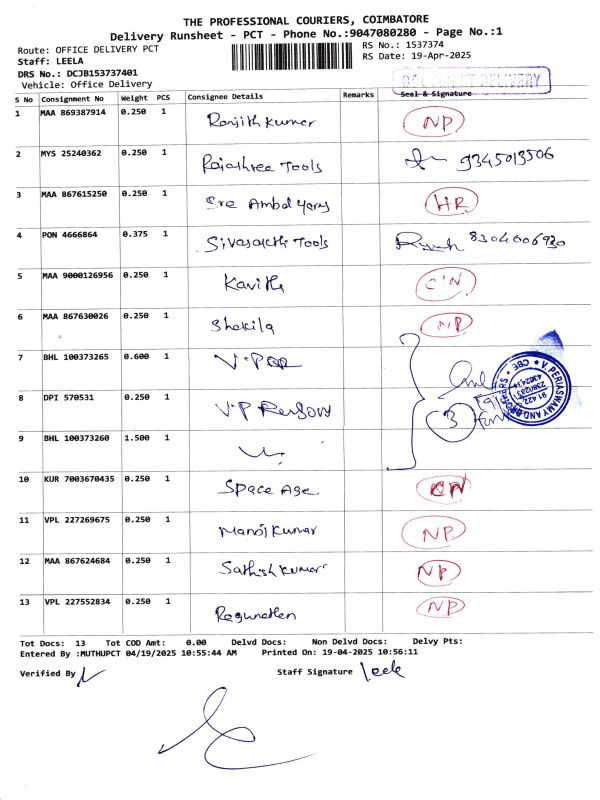 THE PROFESSIONAL COURIERS, COIMBATORE
Delivery Runsheet - PCT - Phone No.:9047080280 - Page No.:1
Route: OFFICE DELIVERY PCT
RS No.: 1537374
Staff: LEELA
RS Date: 19-Apr-2025
DRS No.: DCJB153737401
Vehicle: Office Delivery
DELIVERY
S No Consignment No Weight PCS Consignee Details Remarks Seal & Signature
1 MAA 869387914 0.250 1 Ranjith Kumar NP
2 MYS 25240362 0.250 1 Rajashree Tools 9345013506
3 MAA 867615250 0.250 1 Sre Ambal HR
4 PON 4666864 0.375 1 Sivasakthi Tools 8304006920
5 MAA 9000126956 0.250 1 Kavitha CN
6 MAA 867630026 0.250 1 Shakila NP
7 BHL 100373265 0.600 1
8 DPI 570531 0.250 1 V.P 3
9 BHL 100373260 1.500 1
V. PERIASWAMY AND BROTHERS * CBE *
10 KUR 7003670435 0.250 1 Space Age CN
11 VPL 227269675 0.250 1 Manoj Kumar NP
12 MAA 867624684 0.250 1 Sathish Kumar NP
13 VPL 227552834 0.250 1 NP
Tot Docs: 13 Tot COD Amt: 0.00 Delvd Docs: Non Delvd Docs: Delvy Pts:
Entered By :MUTHUPCT 04/19/2025 10:55:44 AM Printed On: 19-04-2025 10:56:11
Verified By
Staff Signature leela